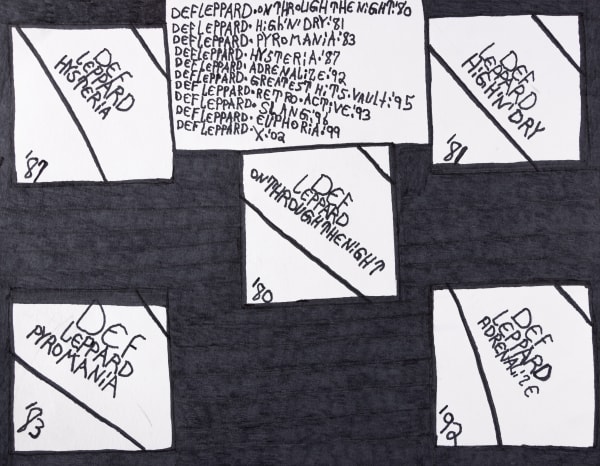 DEFLEPPARD.ONTHROUGHTHENIGHT:'80
DEFLEPPARD.HiGH'N'DRY:'81
DEFLEPPARD.PYROMANiA:'83
DEFLEPPARD.HYSTERiA:'87
DEFLEPPARD.ADRENALiZE:'92
DEFLEPPARD.GREATESTHiTS.VAULT:'95
DEFLEPPARD.RETRO.ACTiVE:'93
DEFLEPPARD.SLANG:'96
DEFLEPPARD.EUPHORiA:'99
DEFLEPPARD.X:'02
DEF
LEPPARD
HiSTERiA
'87
DEF
LEPPARD
HiGH'N'DRY
'81
DEF
LEPPARD
ONTHROUGHTHENiGHT
'80
DEF
LEPPARD
PYROMANiA
'83
DEF
LEPPARD
ADRENALiZE
'92